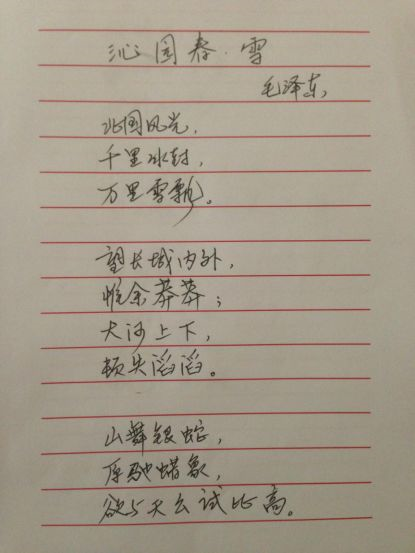 沁园春·雪
毛泽东
北国风光,
千里冰封,
万里雪飘。
望长城内外,
惟余莽莽;
大河上下,
顿失滔滔。
山舞银蛇,
原驰蜡象,
欲与天公试比高。